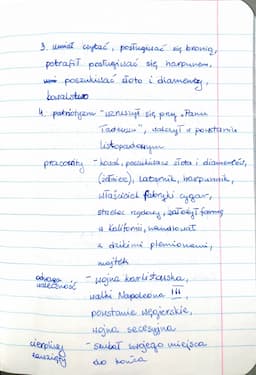 3. umiał czytać, posługiwać się bronią,
potrafił posługiwać się harpunem,
poszukiwać złoto i diamenty,
kowalstwo
4. patriotyzm - wzruszył się przy „Panu
Tadeuszu", walczył w powstaniu
listopadowym
pracowity - kowal, poszukiwacz złota i diamentów,
(żołnierz), latarnik, harpunnik,
właściciel fabryki cygar,
strzelec rządowy, założył farmę
w Kalifornii, handlował
z dzikimi plemionami,
majtek
odwaga - wojna karlistowska,
waleczność
walki Napoleona III,
powstanie węgierskie,
wojna secesyjna
cierpliwy - szukał swojego miejsca
do końca